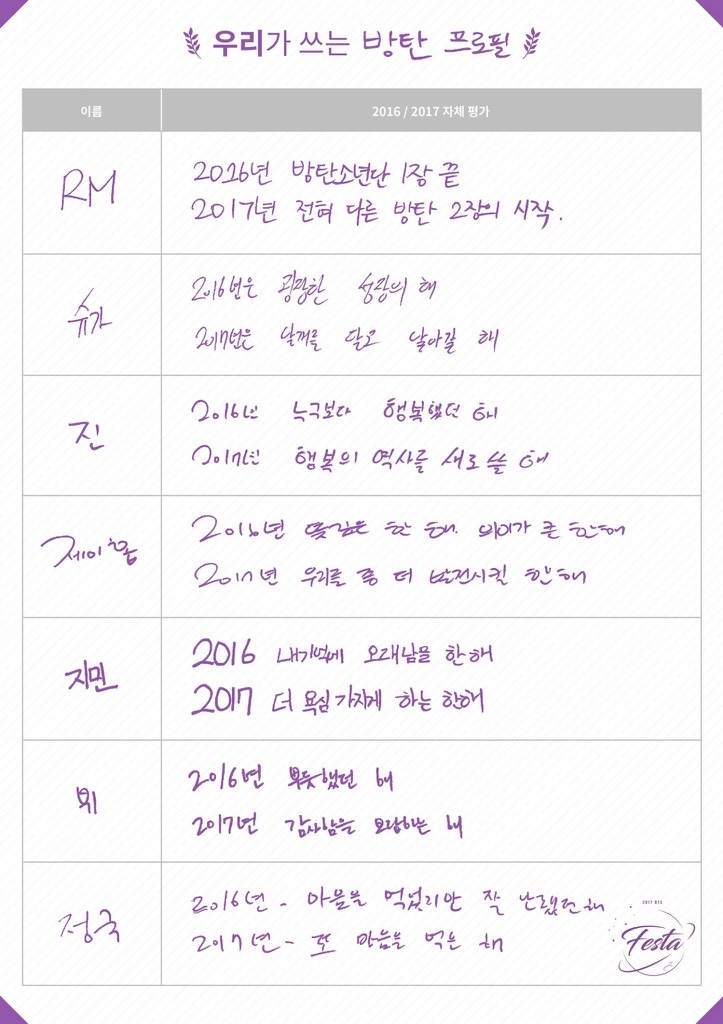 우리가 쓰는 방탄 프로필
이름
2016 / 2017 자체 평가
RM
2016년 방탄소년단 1장 끝
2017년 전혀 다른 방탄 2장의 시작.
슈가
2016년은 굉장한 성장의 해
2017년은 날개를 달고 날아갈 해
진
2016년 누구보다 행복했던 해
2017년 행복의 역사를 새로 쓸 해
제이홉
2016년 뜻깊은 한 해. 의미가 큰 한 해
2017년 우리를 좀 더 발전시킬 한 해
지민
2016 내 기억에 오래 남을 한 해
2017 더 욕심 가지게 하는 한 해
뷔
2016년 뿌듯했던 해
2017년 감사함을 보답하는 해
정국
2016년 - 마음을 먹었지만 잘 안됐던 해
2017년 - 또 마음을 먹은 해
2017 BTS
Festa